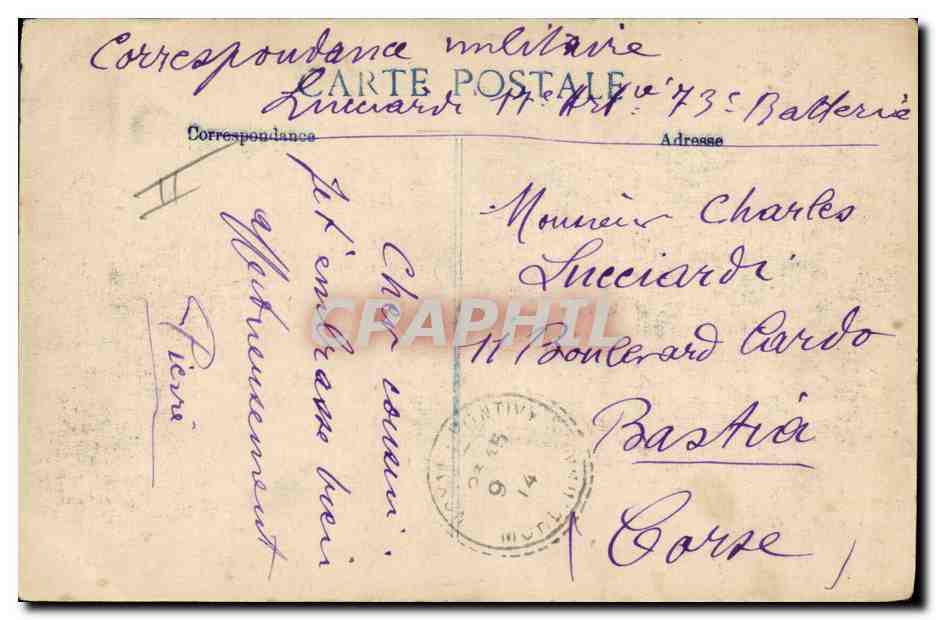 Correspondance militaire
CARTE POSTALE
Lucciardi 17e Artie 73e Batterie
Correspondance
Adresse
Cher cousin.
Je t'embrasse bien
affectueusement
Pierre
Monsieur Charles
Lucciardi
11 Boulevard Cardo
Bastia
(Corse)
PONTIVY
15
9
14
CRAPHIL